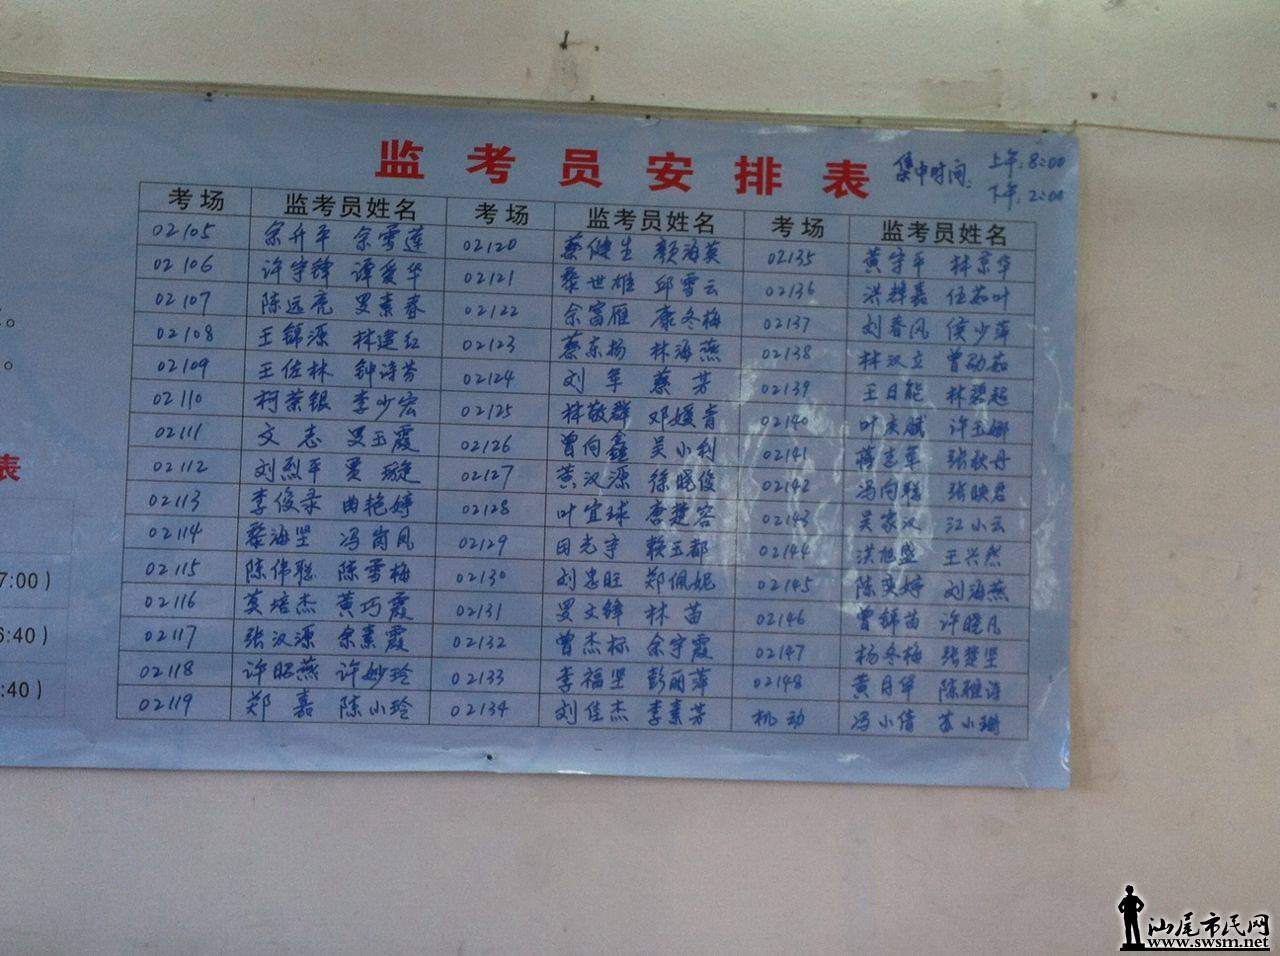 监考员安排表 集中时间: 上午:8:00
下午:2:00
考场 监考员姓名 考场 监考员姓名 考场 监考员姓名
02105 余升平 余雪莲 02120 蔡健生 颜海英 02135 黄宇平 林景华
02106 许宇锋 谭爱华 02121 黎世雄 邱雪云 02136 洪群嘉 伍茹叶
02107 陈远亮 罗素春 02122 余富雁 康冬梅 02137 刘春风 侯少萍
02108 王锦源 林建红 02123 蔡东扬 林海燕 02138 林汉立 曾劭茹
02109 王佐林 钟诗芬 02124 刘军 蔡芳 02139 王日能 林碧超
02110 柯荣银 李少宏 02125 林敬群 邓媛青 02140 叶庆斌 许玉娜
02111 文志 罗玉霞 02126 曾向鑫 吴小利 02141 蒋志军 张秋丹
02112 刘烈平 贾璇 02127 黄汉源 徐晓俊 02142 冯向聪 张映君
02113 李俊录 曲艳婷 02128 叶宜球 唐楚容 02143 吴家汉 江小云
02114 黎海坚 冯岗凤 02129 田光宇 赖玉都 02144 洪旭盛 王兴然
02115 陈伟聪 陈雪梅 02130 刘忠旺 郑佩妮 02145 陈奕婷 刘海燕
02116 莫培杰 黄巧霞 02131 罗文锋 林苗 02146 曾锦苗 许晓凡
02117 张汉源 余素霞 02132 曾杰标 余宇霞 02147 杨冬梅 张楚坚
02118 许昭燕 许妙玲 02133 李福坚 彭丽萍 02148 黄月华 陈雅
02119 郑嘉 陈小玲 02134 刘佳杰 李素芳 机动 冯小倩 苏小珊
表
7:00)
6:40)
:40)
汕尾市民网
www.swsm.net